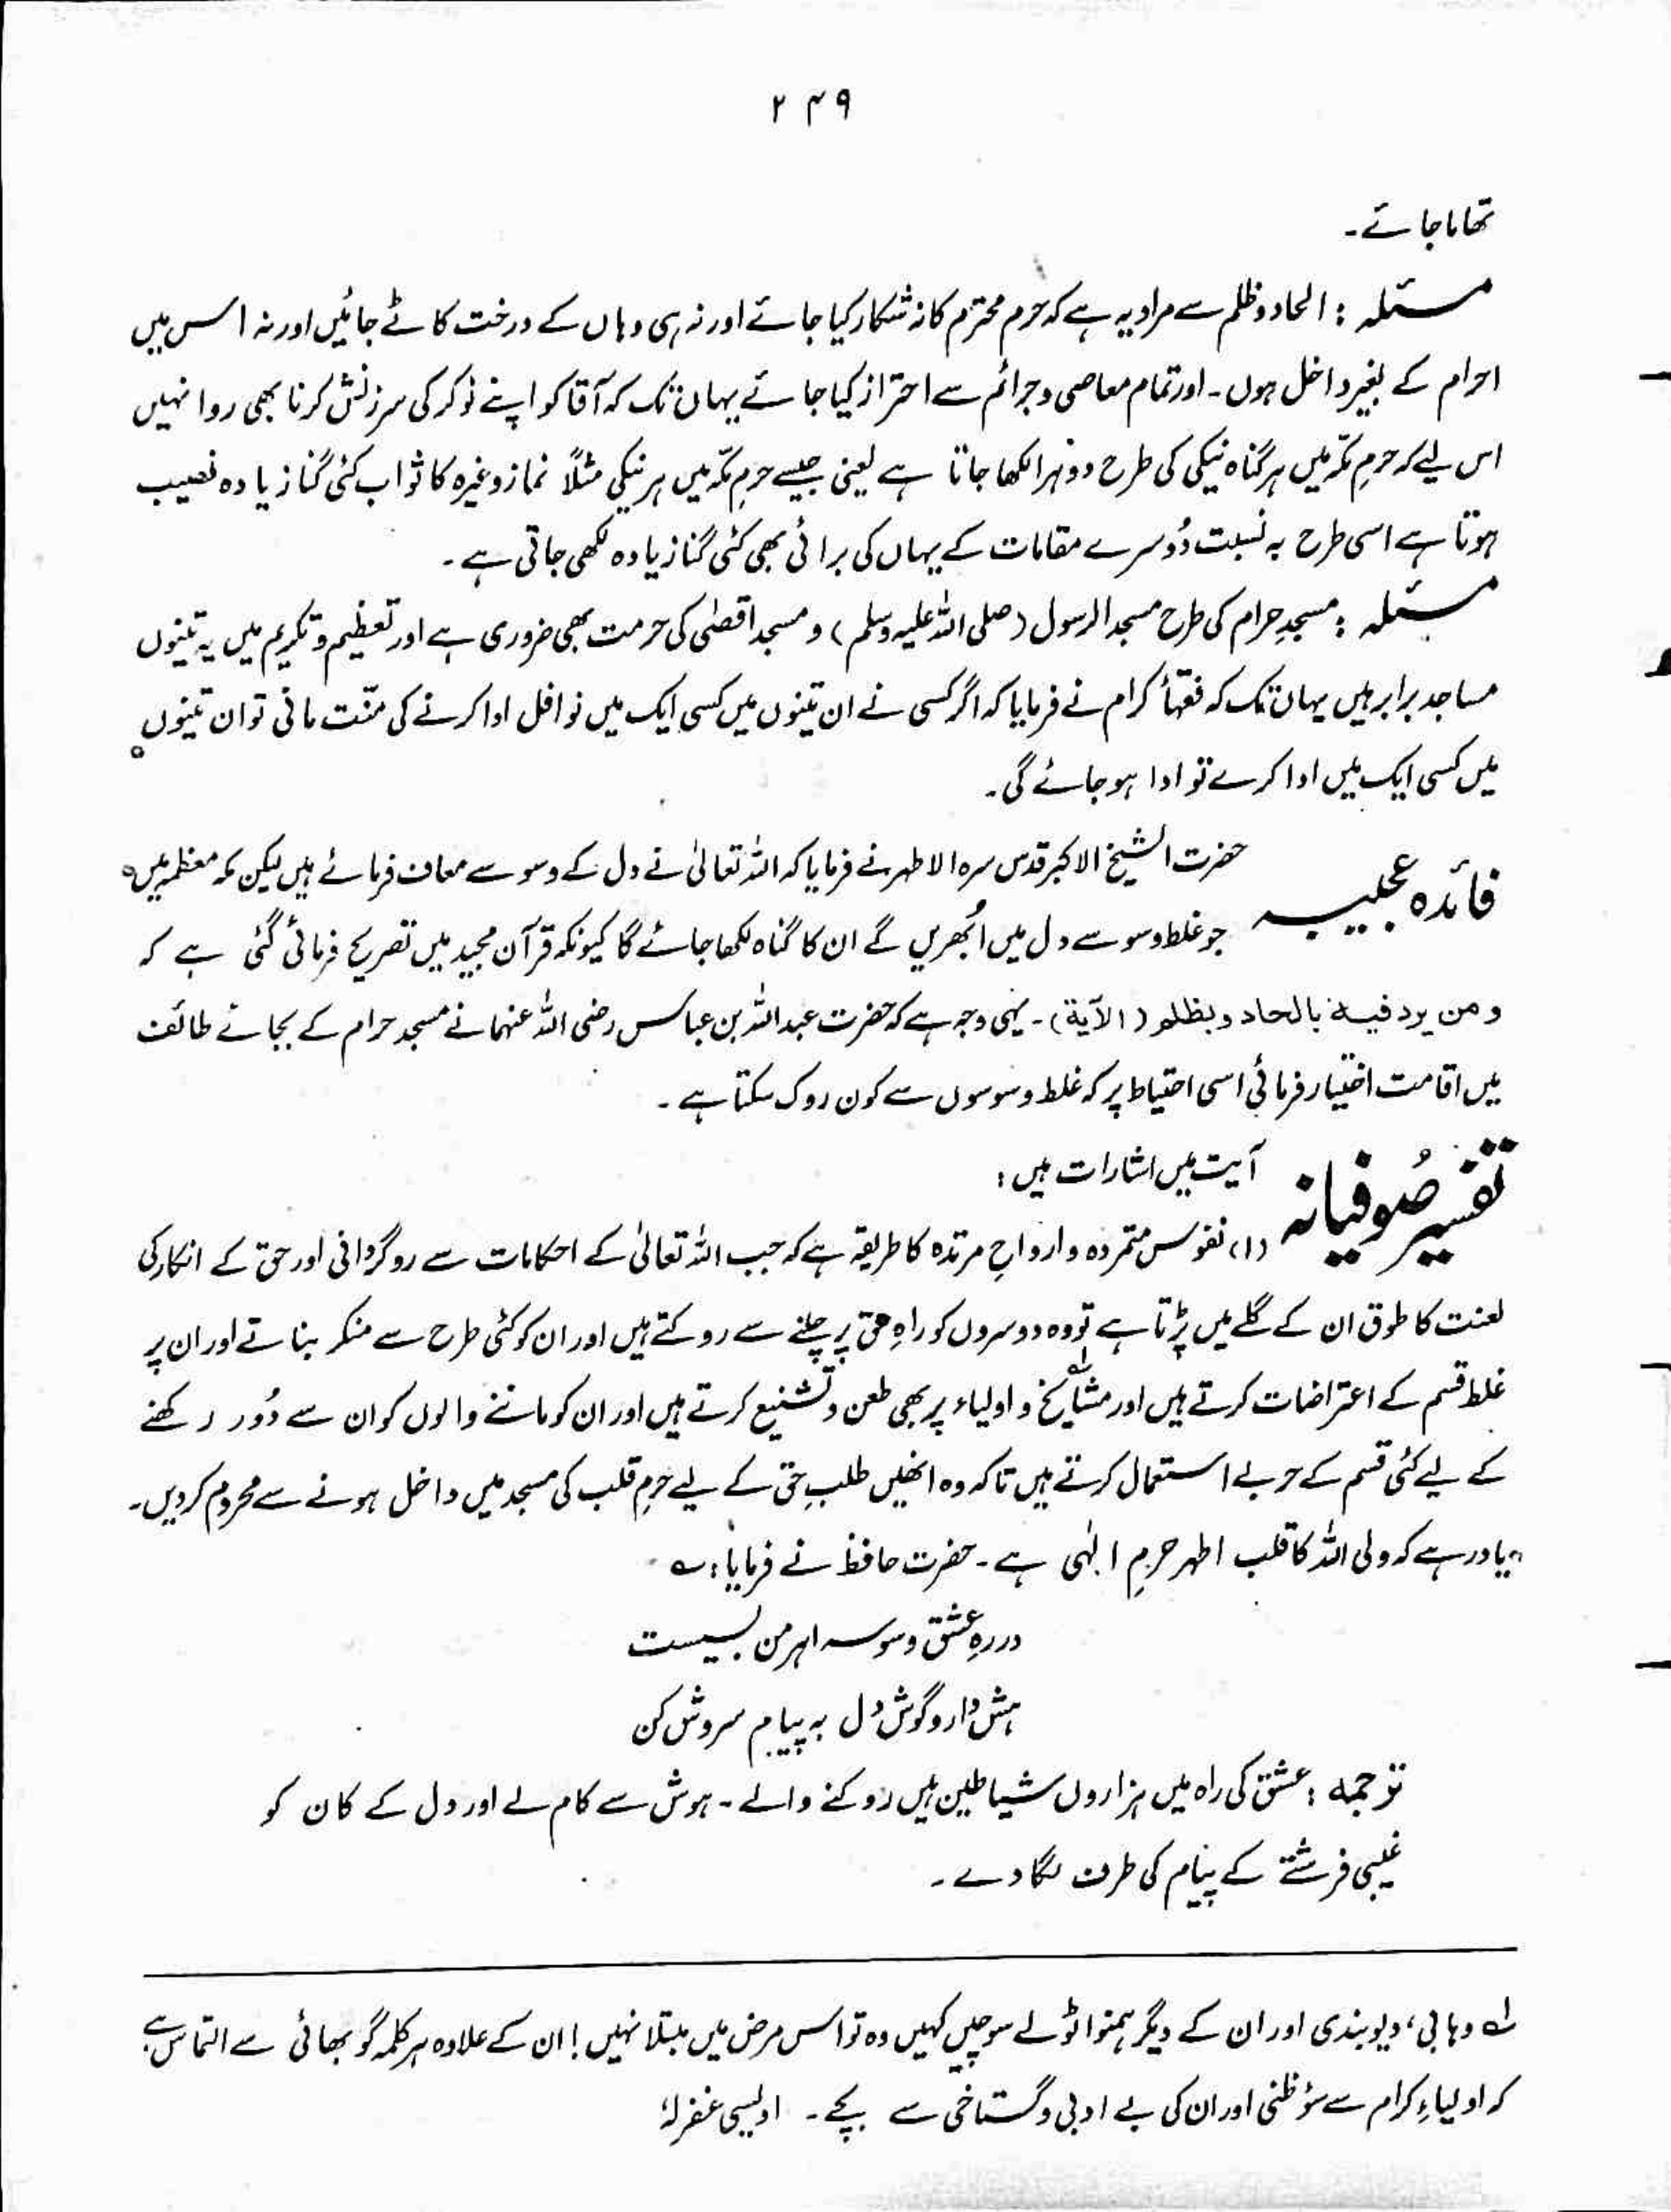 ۲۴۹
تھاما جائے۔
مسئلہ : الحاد و ظلم سے مراد یہ ہے کہ حرم محترم کا نہ شکار کیا جائے اور نہ ہی وہاں کے درخت کاٹے جائیں اور نہ اس میں
احرام کے بغیر داخل ہوں۔ اور تمام معاصی و جرائم سے احتراز کیا جائے یہاں تک کہ آقا کو اپنے نوکر کی سرزنش کرنا بھی روا نہیں
اس لیے کہ حرمِ مکّہ میں ہر گناہ نیکی کی طرح دوہرا لکھا جاتا ہے یعنی جیسے حرمِ مکّہ میں ہر نیکی مثلاً نماز وغیرہ کا ثواب کئی گنا زیادہ نصیب
ہوتا ہے اسی طرح بہ نسبت دُوسرے مقامات کے یہاں کی برائی بھی کئی گنا زیادہ لکھی جاتی ہے۔
مسئلہ : مسجدِ حرام کی طرح مسجد الرسول (صلی اللہ علیہ وسلم) و مسجد اقصٰی کی حرمت بھی ضروری ہے اور تعظیم و تکریم میں یہ تینوں
مساجد برابر ہیں یہاں تک کہ فقہأ کرام نے فرمایا کہ اگر کسی نے ان تینوں میں کسی ایک میں نوافل ادا کرنے کی منّت مانی تو ان تینوں
میں کسی ایک میں ادا کرے تو ادا ہو جائے گی۔
فائدہ عجیبہ حضرت الشیخ الاکبر قدس سرہ الاطہر نے فرمایا کہ اللہ تعالیٰ نے دل کے وسوسے معاف فرمائے ہیں لیکن مکہ معظمہ میں
جو غلط وسوسے دل میں اُبھریں گے ان کا گناہ لکھا جائے گا کیونکہ قرآن مجید میں تصریح فرمائی گئی ہے کہ
ومن یرد فیہ بالحاد وبظلم (الآیۃ)۔ یہی وجہ ہے کہ حضرت عبداللہ بن عباس رضی اللہ عنہما نے مسجد حرام کے بجائے طائف
میں اقامت اختیار فرمائی اسی احتیاط پر کہ غلط وسوسوں سے کون روک سکتا ہے۔
تفسیر صُوفیانہ آیت میں اشارات ہیں :
(۱) نفوس متمردہ و ارواحِ مرتدہ کا طریقہ ہے کہ جب اللہ تعالیٰ کے احکامات سے روگردانی اور حق کے انکار کی
لعنت کا طوق ان کے گلے میں پڑتا ہے تو وہ دوسروں کو راہِ حق پر چلنے سے روکتے ہیں اور ان کو کئی طرح سے منکر بناتے اور ان پر
غلط قسم کے اعتراضات کرتے ہیں اور مشایخ و اولیاء پر بھی طعن و تشنیع کرتے ہیں اور ان کو ماننے والوں کو ان سے دُور رکھنے
کے لیے کئی قسم کے حربے استعمال کرتے ہیں تاکہ وہ انھیں طلبِ حق کے لیے حرمِ قلب کی مسجد میں داخل ہونے سے محروم کردیں۔
یاد رہے کہ ولی اللہ کا قلب اطہر حرمِ الٰہی ہے۔ حضرت حافظ نے فرمایا : ؎
در رہِ عشق وسوسہ اہرمن بسیست
ہش دار و گوش دل بہ پیام سروش کن
ترجمہ : عشق کی راہ میں ہزاروں شیاطین ہیں روکنے والے۔ ہوش سے کام لے اور دل کے کان کو
غیبی فرشتے کے پیام کی طرف لگا دے۔
لہ وہابی، دیوبندی اور ان کے دیگر ہمنوا ٹولے سوچیں کہیں وہ تو اس مرض میں مبتلا نہیں ! ان کے علاوہ ہر کلمہ گو بھائی سے التماس ہے
کہ اولیاءِ کرام سے سؤ ظنی اور ان کی بے ادبی و گستاخی سے بچے۔ اویسی غفرلہٗ